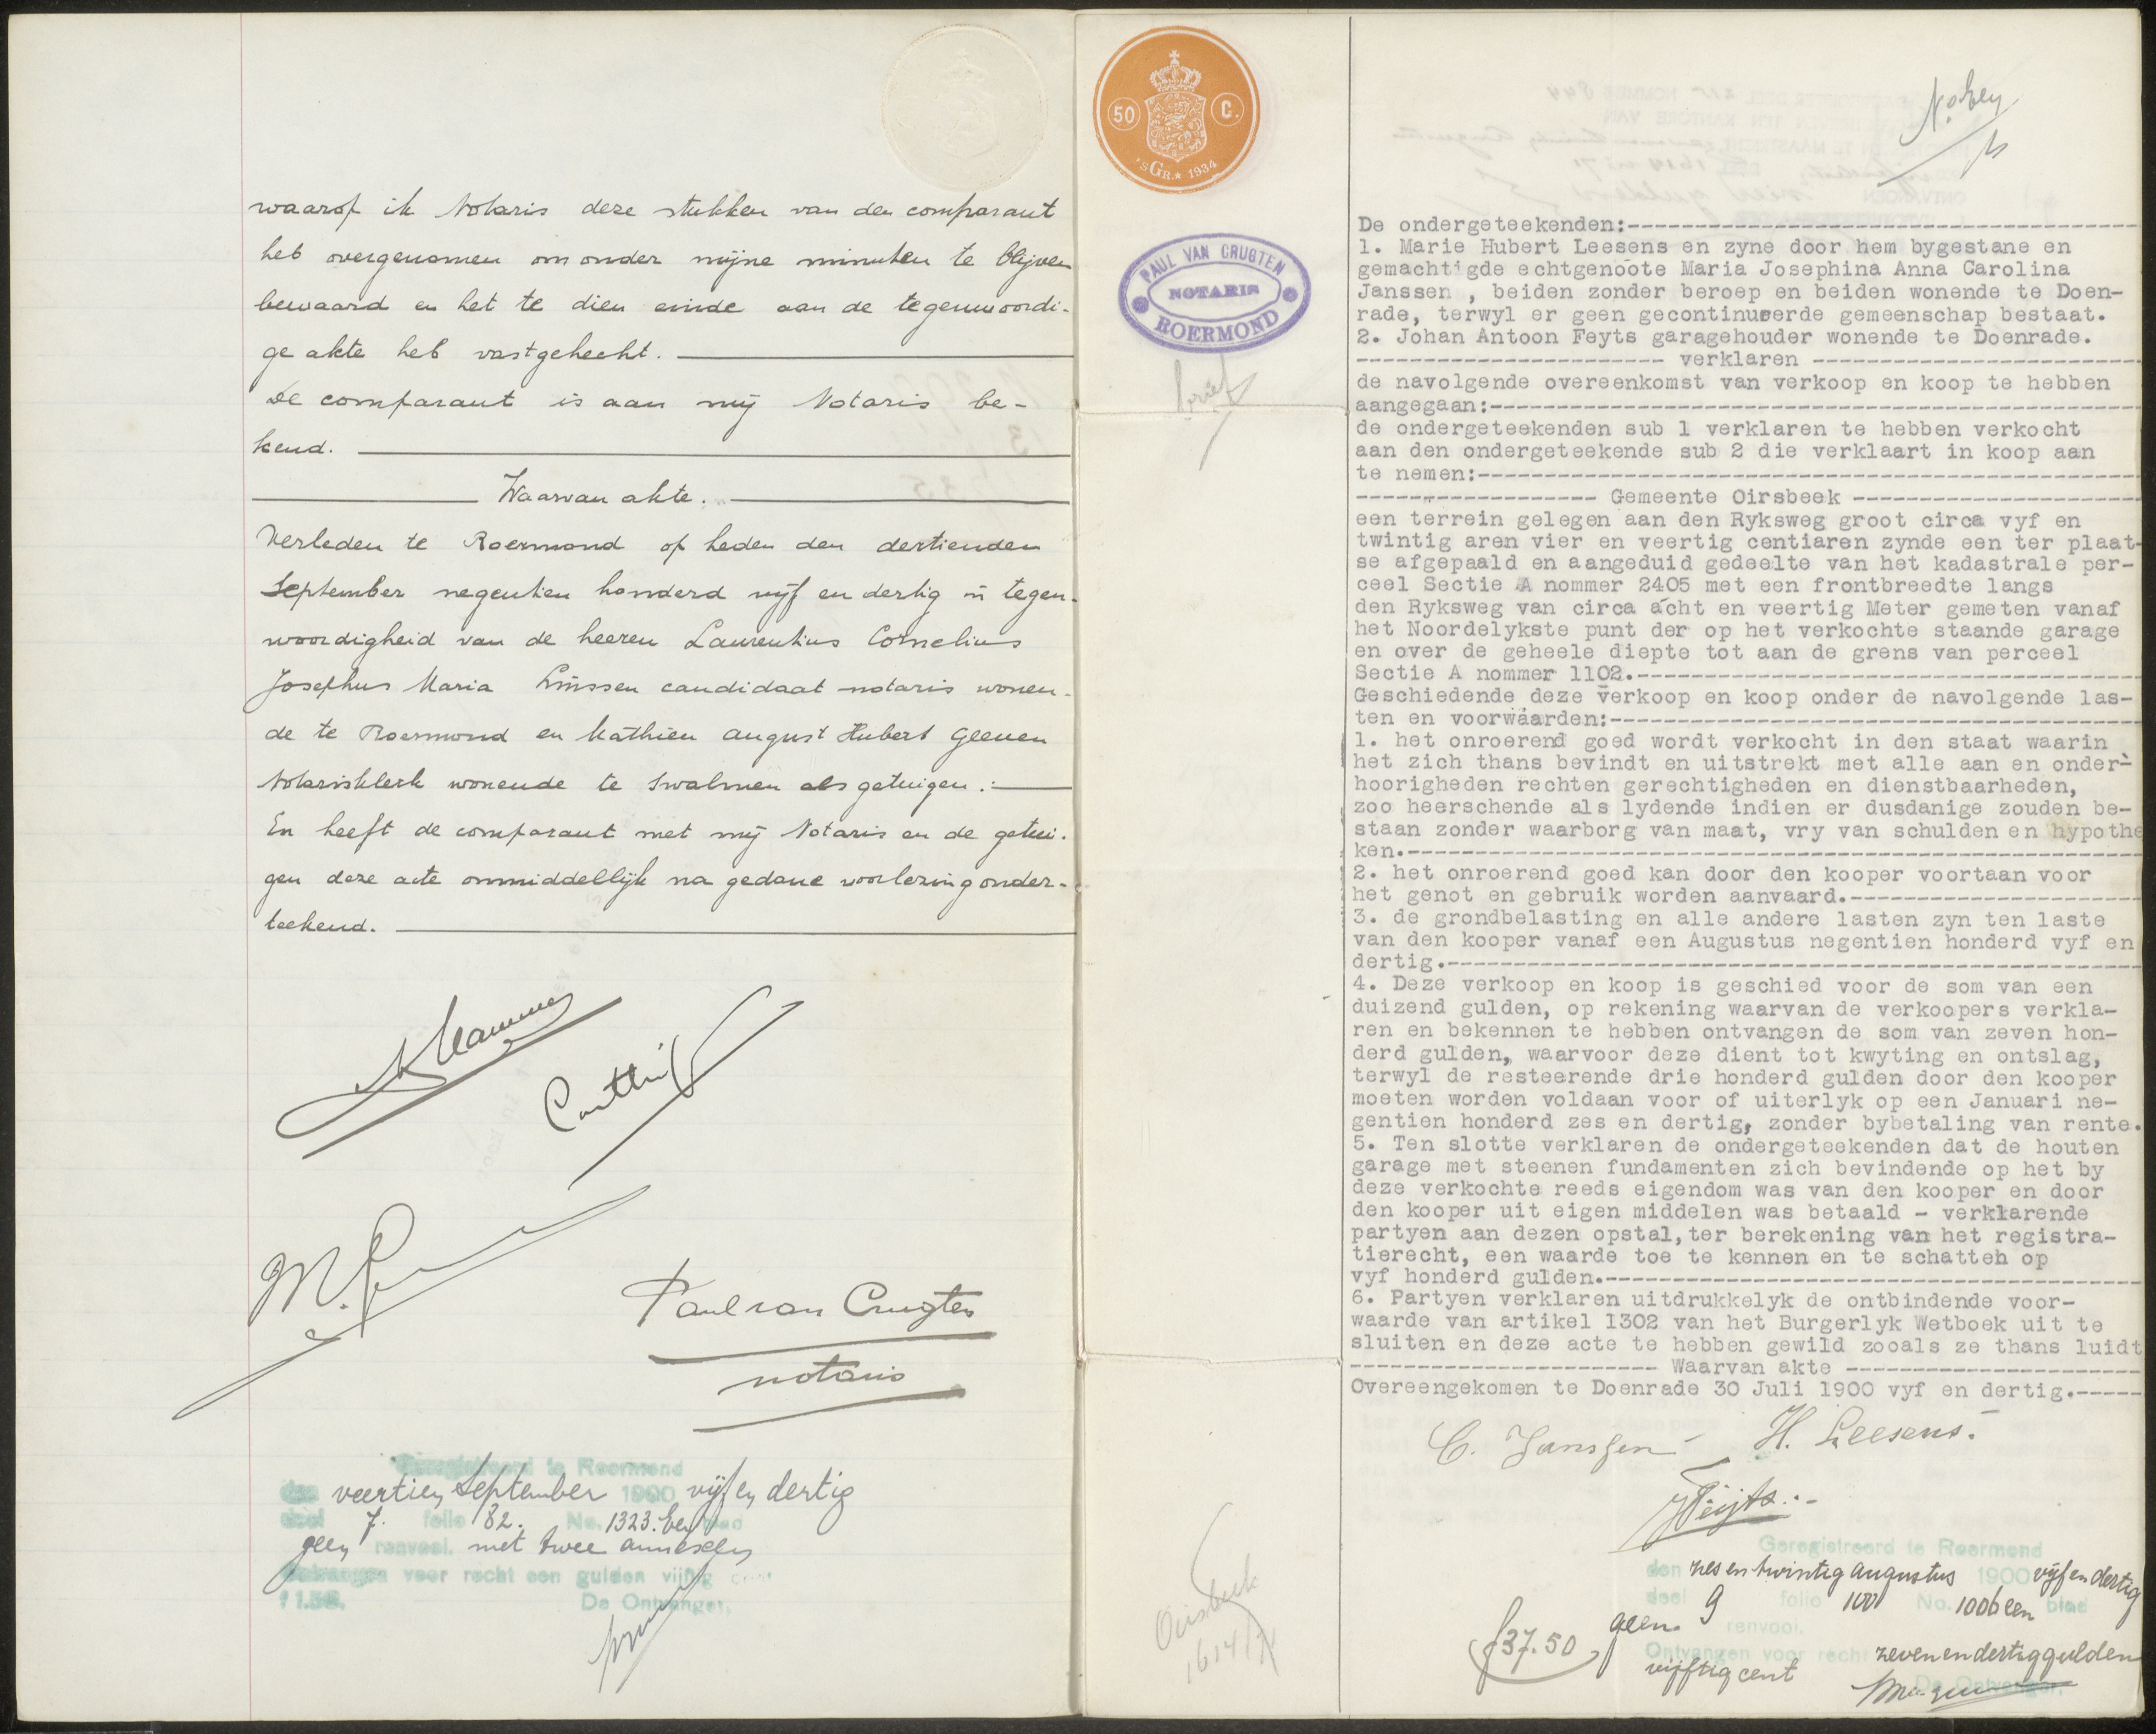 waarop ik Notaris deze stukken van den comparant
heb overgenomen om onder mijne minuten te blijven
bewaard en het te dien einde aan de tegenwoordi-
ge akte heb vastgehecht.
De comparant is aan mij Notaris be-
kend.
Waarvan akte.
Verleden te Roermond op heden den dertienden
September negentien honderd vijf en dertig in tegen-
woordigheid van de heeren Laurentius Cornelius
Josephus Maria Linssen candidaat notaris wonen-
de te Roermond en Mathieu August Hubert Geenen
Notarisklerk wonende te Swalmen als getuigen.:
En heeft de comparant met mij Notaris en de getui-
gen deze acte onmiddellijk na gedane voorlezing onder-
teekend.
Paul van Crugten
notaris
Geregistreerd te Roermond
den veertien September 1900 vijf en dertig
deel 7. folio 182. No. 1323. Een blad
geen renvooi. met twee annexen
Ontvangen voor recht een gulden vijftig cent
f 1.50. De Ontvanger,
50 C.
'sGR.* 1934
PAUL VAN CRUGTEN
NOTARIS
ROERMOND
brief
Oirsbeek
1614/71
De ondergeteekenden:-----------------------------------
1. Marie Hubert Leesens en zyne door hem bygestane en
gemachtigde echtgenoote Maria Josephina Anna Carolina
Janssen , beiden zonder beroep en beiden wonende te Doen-
rade, terwyl er geen gecontinueerde gemeenschap bestaat.
2. Johan Antoon Feyts garagehouder wonende te Doenrade.
----------------------- verklaren -----------------------
de navolgende overeenkomst van verkoop en koop te hebben
aangegaan:-----------------------------------------------
de ondergeteekenden sub 1 verklaren te hebben verkocht
aan den ondergeteekende sub 2 die verklaart in koop aan
te nemen:------------------------------------------------
------------------ Gemeente Oirsbeek --------------------
een terrein gelegen aan den Ryksweg groot circa vyf en
twintig aren vier en veertig centiaren zynde een ter plaat-
se afgepaald en aangeduid gedeelte van het kadastrale per-
ceel Sectie A nommer 2405 met een frontbreedte langs
den Ryksweg van circa acht en veertig Meter gemeten vanaf
het Noordelykste punt der op het verkochte staande garage
en over de geheele diepte tot aan de grens van perceel
Sectie A nommer 1102.------------------------------------
Geschiedende deze verkoop en koop onder de navolgende las-
ten en voorwaarden:--------------------------------------
1. het onroerend goed wordt verkocht in den staat waarin
het zich thans bevindt en uitstrekt met alle aan en onder-
hoorigheden rechten gerechtigheden en dienstbaarheden,
zoo heerschende als lydende indien er dusdanige zouden be-
staan zonder waarborg van maat, vry van schulden en hypothe
ken.-----------------------------------------------------
2. het onroerend goed kan door den kooper voortaan voor
het genot en gebruik worden aanvaard.--------------------
3. de grondbelasting en alle andere lasten zyn ten laste
van den kooper vanaf een Augustus negentien honderd vyf en
dertig.--------------------------------------------------
4. Deze verkoop en koop is geschied voor de som van een
duizend gulden, op rekening waarvan de verkoopers verkla-
ren en bekennen te hebben ontvangen de som van zeven hon-
derd gulden, waarvoor deze dient tot kwyting en ontslag,
terwyl de resteerende drie honderd gulden door den kooper
moeten worden voldaan voor of uiterlyk op een Januari ne-
gentien honderd zes en dertig, zonder bybetaling van rente.
5. Ten slotte verklaren de ondergeteekenden dat de houten
garage met steenen fundamenten zich bevindende op het by
deze verkochte reeds eigendom was van den kooper en door
den kooper uit eigen middelen was betaald - verklarende
partyen aan dezen opstal,ter berekening van het registra-
tierecht, een waarde toe te kennen en te schatten op
vyf honderd gulden.--------------------------------------
6. Partyen verklaren uitdrukkelyk de ontbindende voor-
waarde van artikel 1302 van het Burgerlyk Wetboek uit te
sluiten en deze acte te hebben gewild zooals ze thans luidt
----------------------- Waarvan akte --------------------
Overeengekomen te Doenrade 30 Juli 1900 vyf en dertig.-----
C. Janssen H. Leesens.
Feijts.
Geregistreerd te Roermond
den zes en twintig augustus 1900 vijf en dertig
deel 9 folio 100 No. 1006 een blad
geen renvooi.
Ontvangen voor recht zeven en dertig gulden
f 37.50 vijftig cent
De Ontvanger,